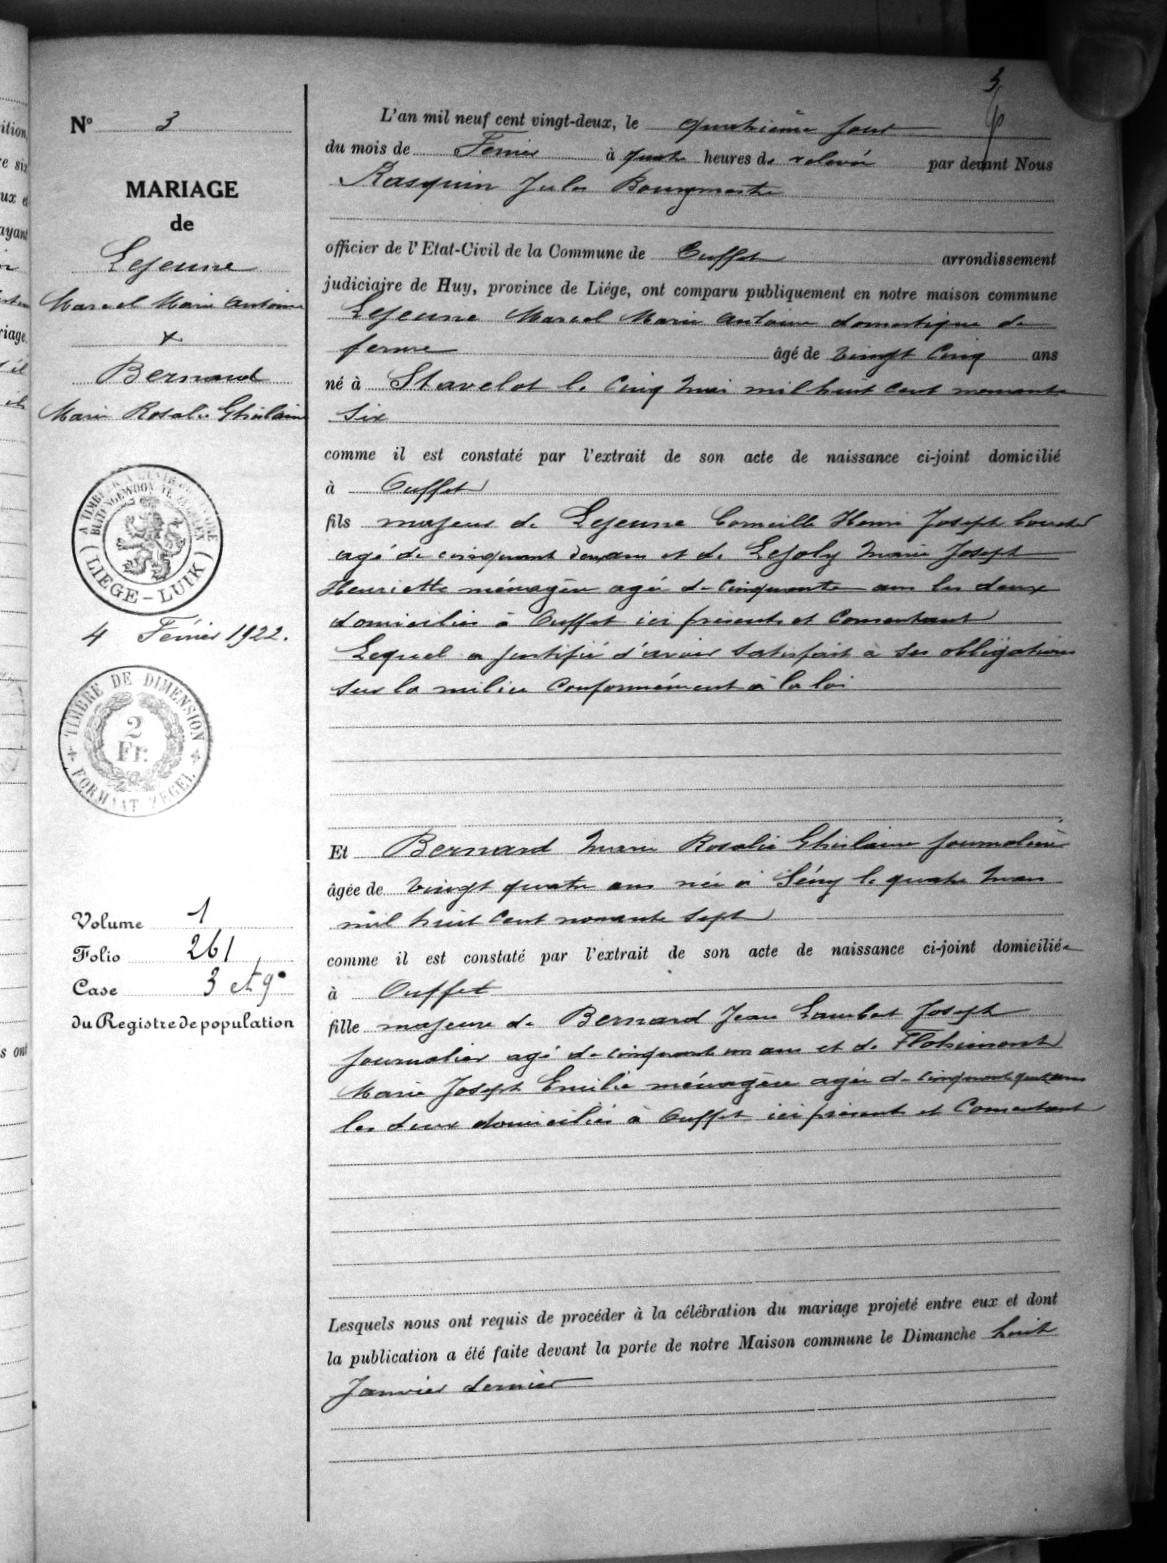 3
N° 3
MARIAGE
de
Lejeune
Marcel Marie Antoine
x
Bernard
Marie Rosalie Ghislaine
A TIMBRER A L'EXTRAORDINAIRE
BUITENGEWOON TE ZEGELEN
(LIEGE - LUIK)
4 Février 1922.
TIMBRE DE DIMENSION
2
Fr.
FORMAAT ZEGEL
Volume 1
Folio 261
Case 3 et 9
du Registre de population
L'an mil neuf cent vingt-deux, le quatrième jour
du mois de Fevrier à quatre heures de relevée par devant Nous
Rasquin Jules Bourgmestre
officier de l'Etat-Civil de la Commune de Ouffet arrondissement
judiciaire de Huy, province de Liége, ont comparu publiquement en notre maison commune
Lejeune Marcel Marie Antoine domestique de
ferme âgé de vingt cinq ans
né à Stavelot le cinq mai mil huit cent nonante
six
comme il est constaté par l'extrait de son acte de naissance ci-joint domicilié
à Ouffet
fils majeur de Lejeune Corneille Henri Joseph
agé de cinquante deux ans et de Lejoly Marie Joseph
Henriette ménagère agée de cinquante ans les deux
domiciliés à Ouffet ici présents et consentant
Lequel a justifié d'avoir satisfait à ses obligations
sur la milice conformément à la loi
Et Bernard Marie Rosalie Ghislaine journalière
âgée de vingt quatre ans née à Sény le quatre mars
mil huit cent nonante sept
comme il est constaté par l'extrait de son acte de naissance ci-joint domiciliée
à Ouffet
fille majeure de Bernard Jean Lambert Joseph
journalier agé de cinquante un ans et de Flohimont
Marie Joseph Emilie ménagère agée de
les deux domiciliés à Ouffet ici présents et consentant
Lesquels nous ont requis de procéder à la célébration du mariage projeté entre eux et dont
la publication a été faite devant la porte de notre Maison commune le Dimanche huit
Janvier dernier